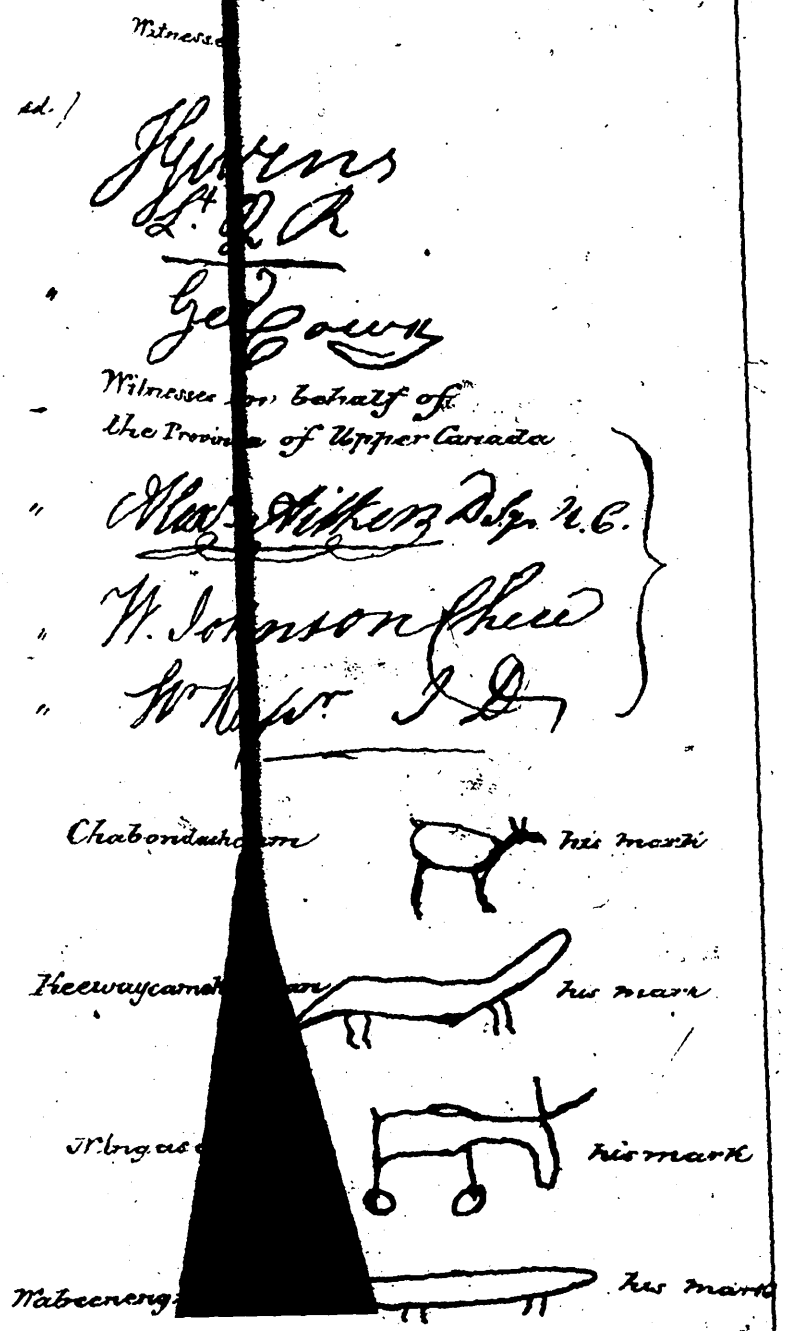 Witnesse
sd.)
H Givens
Lt. Q R
" Geo Cown
Witnesses on behalf of
the Province of Upper Canada
" Alexr. Aitken D. Sr. U. C.
" W. Johnson Chew
" Wm I D
Chabondasheam his mark
Keewaycamek an his mark
his mark
Wabeeneng his mark